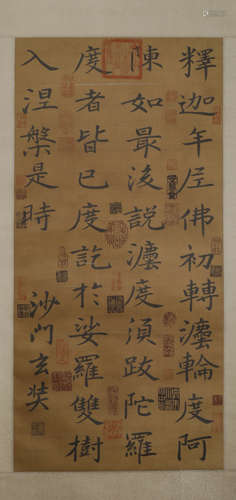 釋迦牟尼佛初轉灋輪度阿
陳如最後說灋度須跋陀羅
度者皆已度訖於娑羅雙樹
入涅槃是時
沙門玄奘